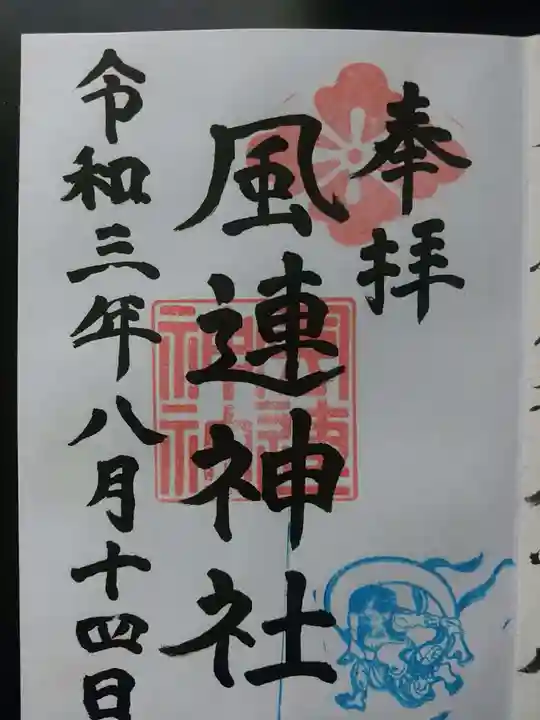 奉拝
風連神社
風連神社
令和三年八月十四日